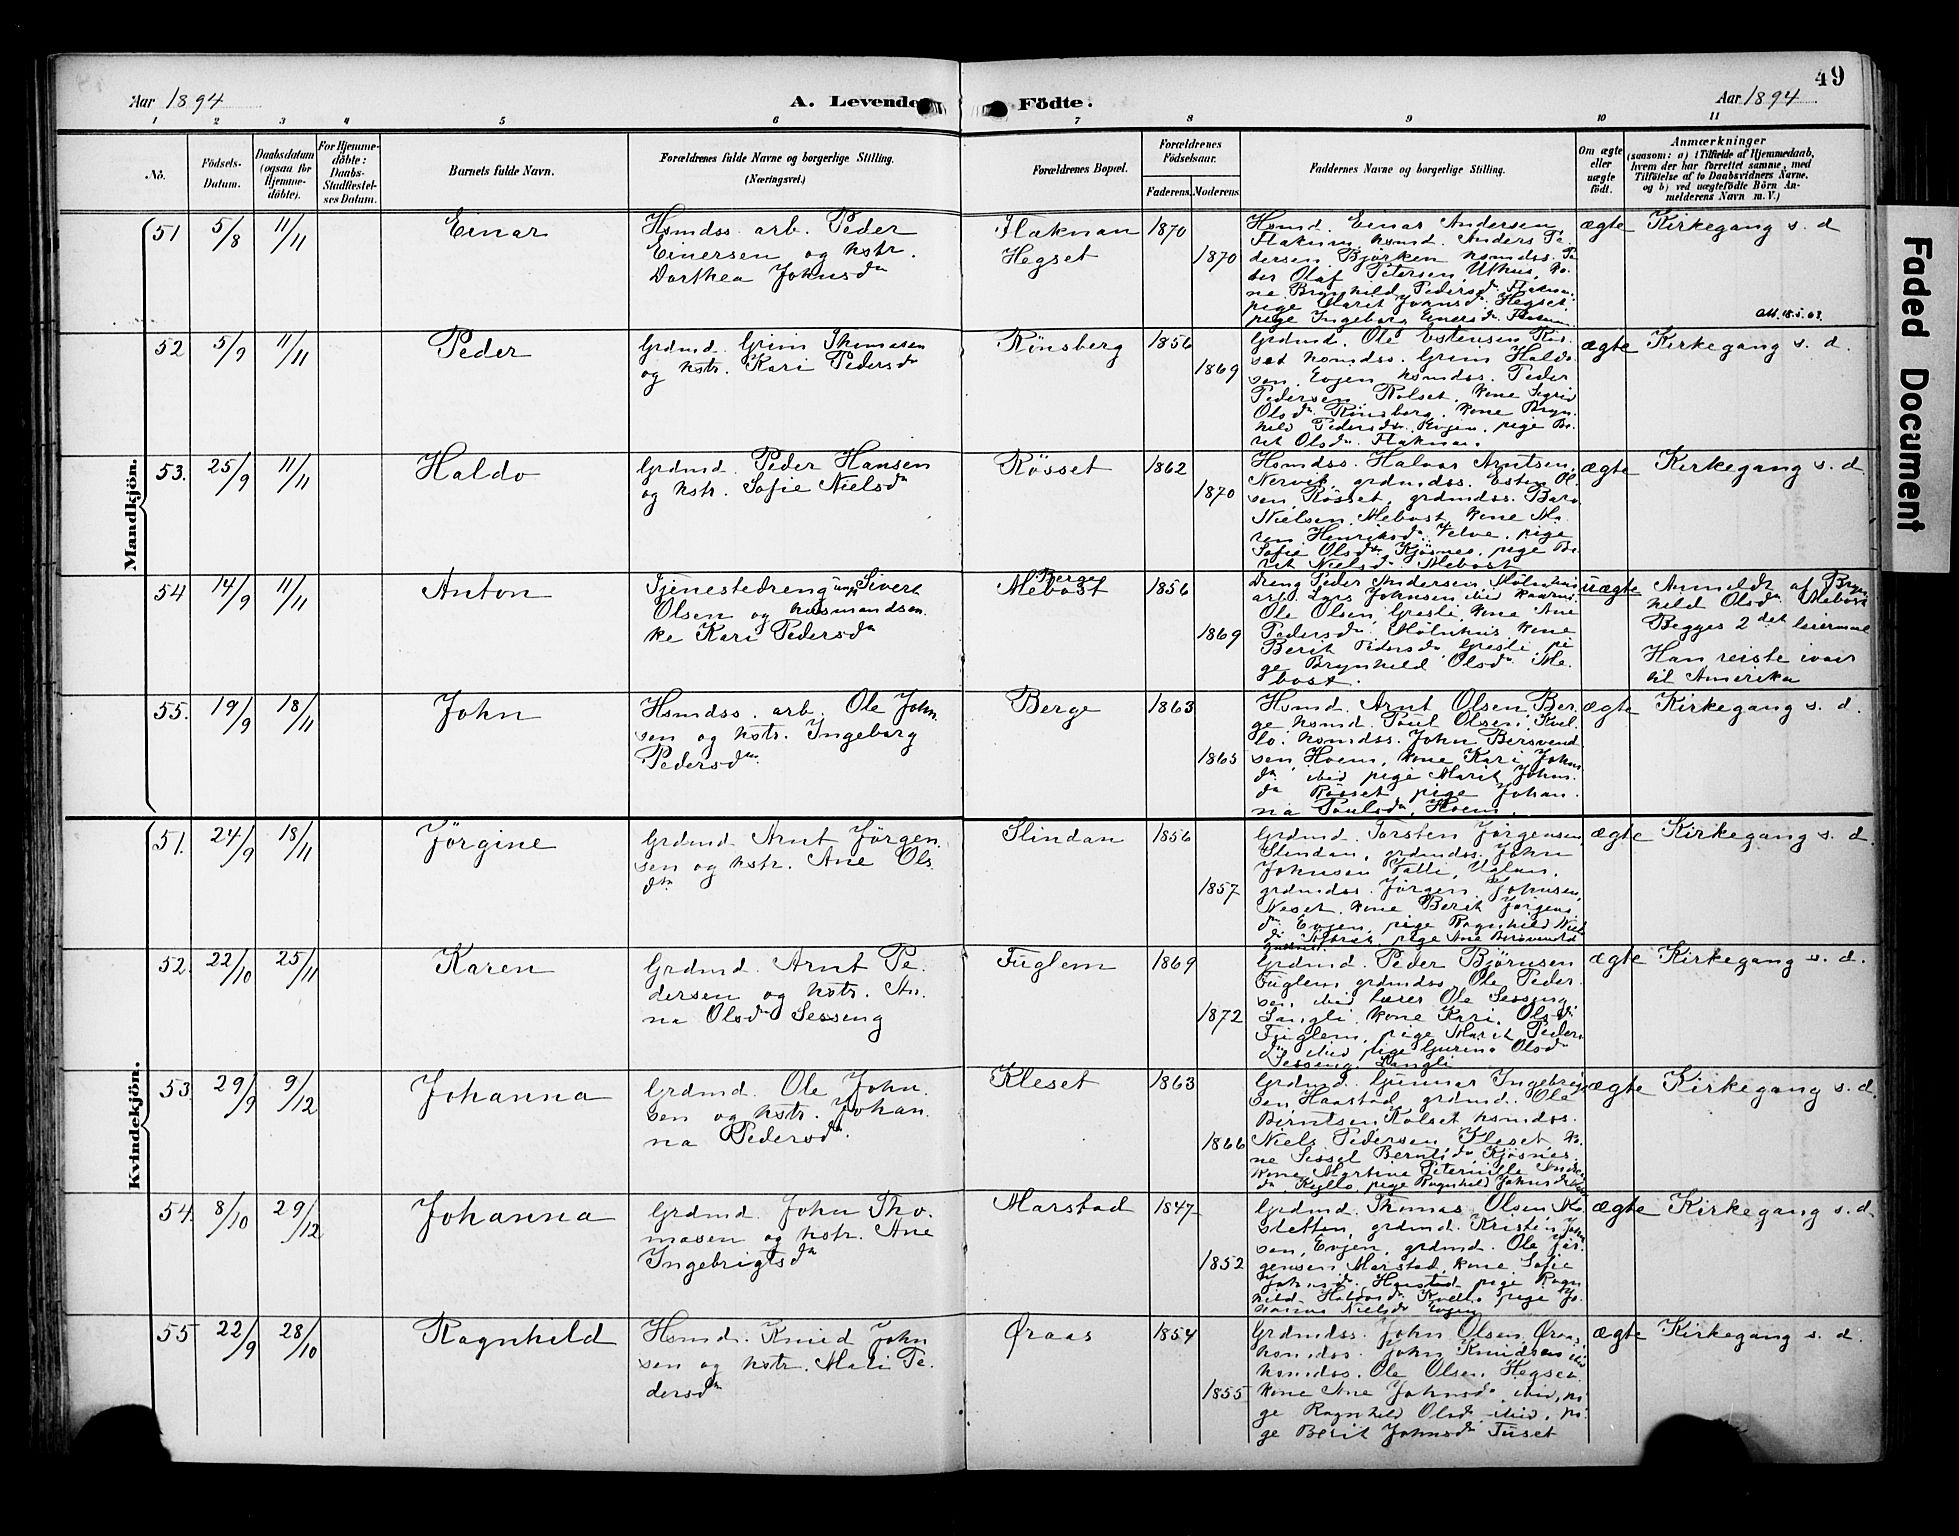 49
Aar 1894
A. Levende Födte.
Aar 1894
1 2 3 4 5 6 7 8 9 10 11
No.
Födsels-
Datum.
Daabsdatum
(ogsaa for
Hjemme-
döbte).
For Hjemme-
döbte:
Daabs-
Stadfæstel-
ses Datum.
Barnets fulde Navn.
Forældrenes fulde Navne og borgerlige Stilling.
(Næringsvei.)
Forældrenes Bopæl.
Forældrenes
Födselsaar.
Faderens. Moderens.
Faddernes Navne og borgerlige Stilling.
Om ægte
eller
uægte
født.
Anmærkninger
(saasom: a) i Tilfælde af Hjemmedaab,
hvem der har forrettet samme, med
Tilföielse af to Daabsvidners Navne,
og b) ved uægtefödte Börn An-
melderens Navn m. V.)
Mandkjön.
51 5/8 11/11 Einar
Hsmdss. arb. Peder
Einersen og hstr.
Dorthea Johnsdr
Flaknan
Hegset
1870
1870
Hsmd. Einar Andersen,
Flaknan, hsmd. Anders Pe-
dersen Bjørken hsmdss. Pe-
der Olaf Petersen Uthus, ko-
ne Brynhild Pedersdr Flaknan,
pige Marit Johnsdr Hegset,
pige Ingeborg Einersdr
ægte
Kirkegang s. d
52 5/9 11/11 Peder
Grdmd. Grim Thomasen
og hstr. Kari Pedersdr
Rönsberg
1856
1869
Grdmd. Ole Estensen
hsmdss. Grim Haldo-
sen, Evjen hsmdss. Peder
Pedersen Rolset, kone Sigrid
Olsdr Rönsberg, kone Bryn-
hild Pedersdr Evjen, pige Be-
rit Olsdr Flaknan.
ægte
Kirkegang s. d.
53. 25/9 11/11 Haldo
Grdmd. Peder Hansen
og hstr. Sofie Nielsdr
Rösset
1862
1870
Hsmdss. Halvor Arntsen,
Nervik, grdmdss. Esten Ol-
sen Rösset, grdmdss. Baro
Nielsen Mebost, kone Ma-
ren Henriksdr Velve, pige
Sofie Olsdr Kjösnes, pige Be-
rit Nielsdr Mebost
ægte
Kirkegang s. d.
54 14/9 11/11 Anton
Tjenestedreng ungk Sivert
Olsen og husmandsen-
ke Kari Pedersdr
Berge
Mebost
1856
1869
Dreng Peder Andersen Mölnhus
arb. Lars Johnsen ibid
Ole Olsen, Gresli, kone Ane
Pedersdr Mölnhus, kone
Berit Pedersdr Gresli, pi-
ge Brynhild Olsdr Me-
bost.
uægte
Anmeldt af Bryn-
hild Olsdr Mebost
Begges 2 det leiermaal
Han reiste ivaar
til Amerika
55. 19/9 18/11 John
Hsmdss. arb. Ole John-
sen og hstr. Ingeborg
Pedersdr
Berge
1863
1865
Hsmd. Arnt Olsen Ber-
ge hsmd. Paul Olsen, Kvel-
lo. hsmdss. John Bersvend-
sen, Hoem, kone Kari Johns-
dr ibid pige Marit Johns-
dr Rösset, pige Johan-
na Paulsdr Hoem.
ægte
Kirkegang s. d.
Kvindekjön.
51. 24/9 18/11 Jörgine
Grdmd. Arnt Jörgen-
sen og hstr. Ane Ols-
dtr
Slindan
1856
1857
Grdmd. Torsten Jörgensen
Slindan, grdmdss. John
Johnsen Valli, Uglan,
grdmdss. Jörgen Johnsen,
Neset, kone Berit Jörgens-
dr Evjen, pige Ragnhild Niels-
dr pige Ane Bersvendsd
ægte
Kirkegang s. d.
52. 22/10 25/11 Karen
Grdmd. Arnt Pe-
dersen og hstr. An-
na Olsdr Sesseng
Fuglem
1869
1872
Grdmd. Peder Björnsen
Fuglem grdmdss. Ole Peder-
sen ibid lærer Ole Sesseng
Langli kone Kari Olsdr
Fuglem, pige Marit Peders-
dr ibid pige Gurine Olsdr
Sesseng Langli
ægte
Kirkegang s. d.
53. 29/9 9/12 Johanna
Grdmd. Ole John-
sen og hstr. Johan-
na Pedersdr.
Kleset
1863
1866
Grdmd. Gunnar Ingebrigt-
sen Haarstad, grdmd. Ole
Berntsen, Rolset, hsmdss.
Niels Pedersen Kleset, ko-
ne Sissel Berntsdr Kjösnes,
kone Martine Peternille
dr Kyllo pige Ragnhild Johnsdr
ægte
Kirkegang s. d.
54. 8/10 29/12 Johanna
Grdmd. John Tho-
masen og hstr. Ane
Ingebrigtsdr
Marstad
1847
1852
Grdmd. Thomas Olsen Mo-
sletten, grdmd. Kristen John-
sen, Evjen, grdmd. Ole Jör-
gensen Marstad, kone Sofie
Johnsdr Harstad pige Ragn-
hild Haldosdr Kvello, pige Jo-
hanna Nielsdr Evjen
ægte
Kirkegang s. d.
55 22/9 28/10 Ragnhild
Hsmd. Knud John-
sen og hstr. Mari Pe-
dersdr
Øraas
1854
1855
Grdmdss. John Olsen Øraas,
hsmdss. John Knudsen ibid
hsmdss. Ole Olsen Hegset
kone Ane Johnsdr ibid, pi-
ge Ragnhild Olsdr ibid, pi-
ge Berit Johnsdr Tuset
ægte
Kirkegang s. d.
Faded Document